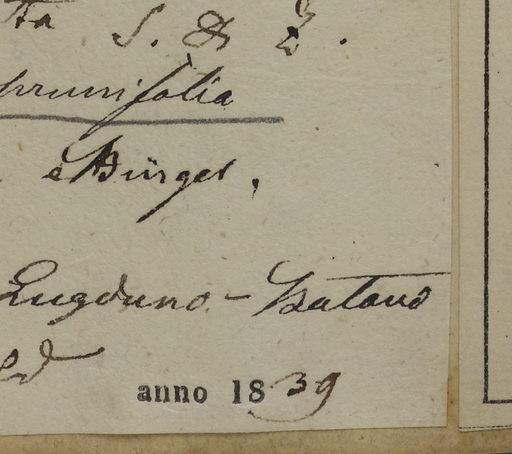 S. & Z.
prunifolia
Bürger.
Lugduno-Batavo
anno 1839